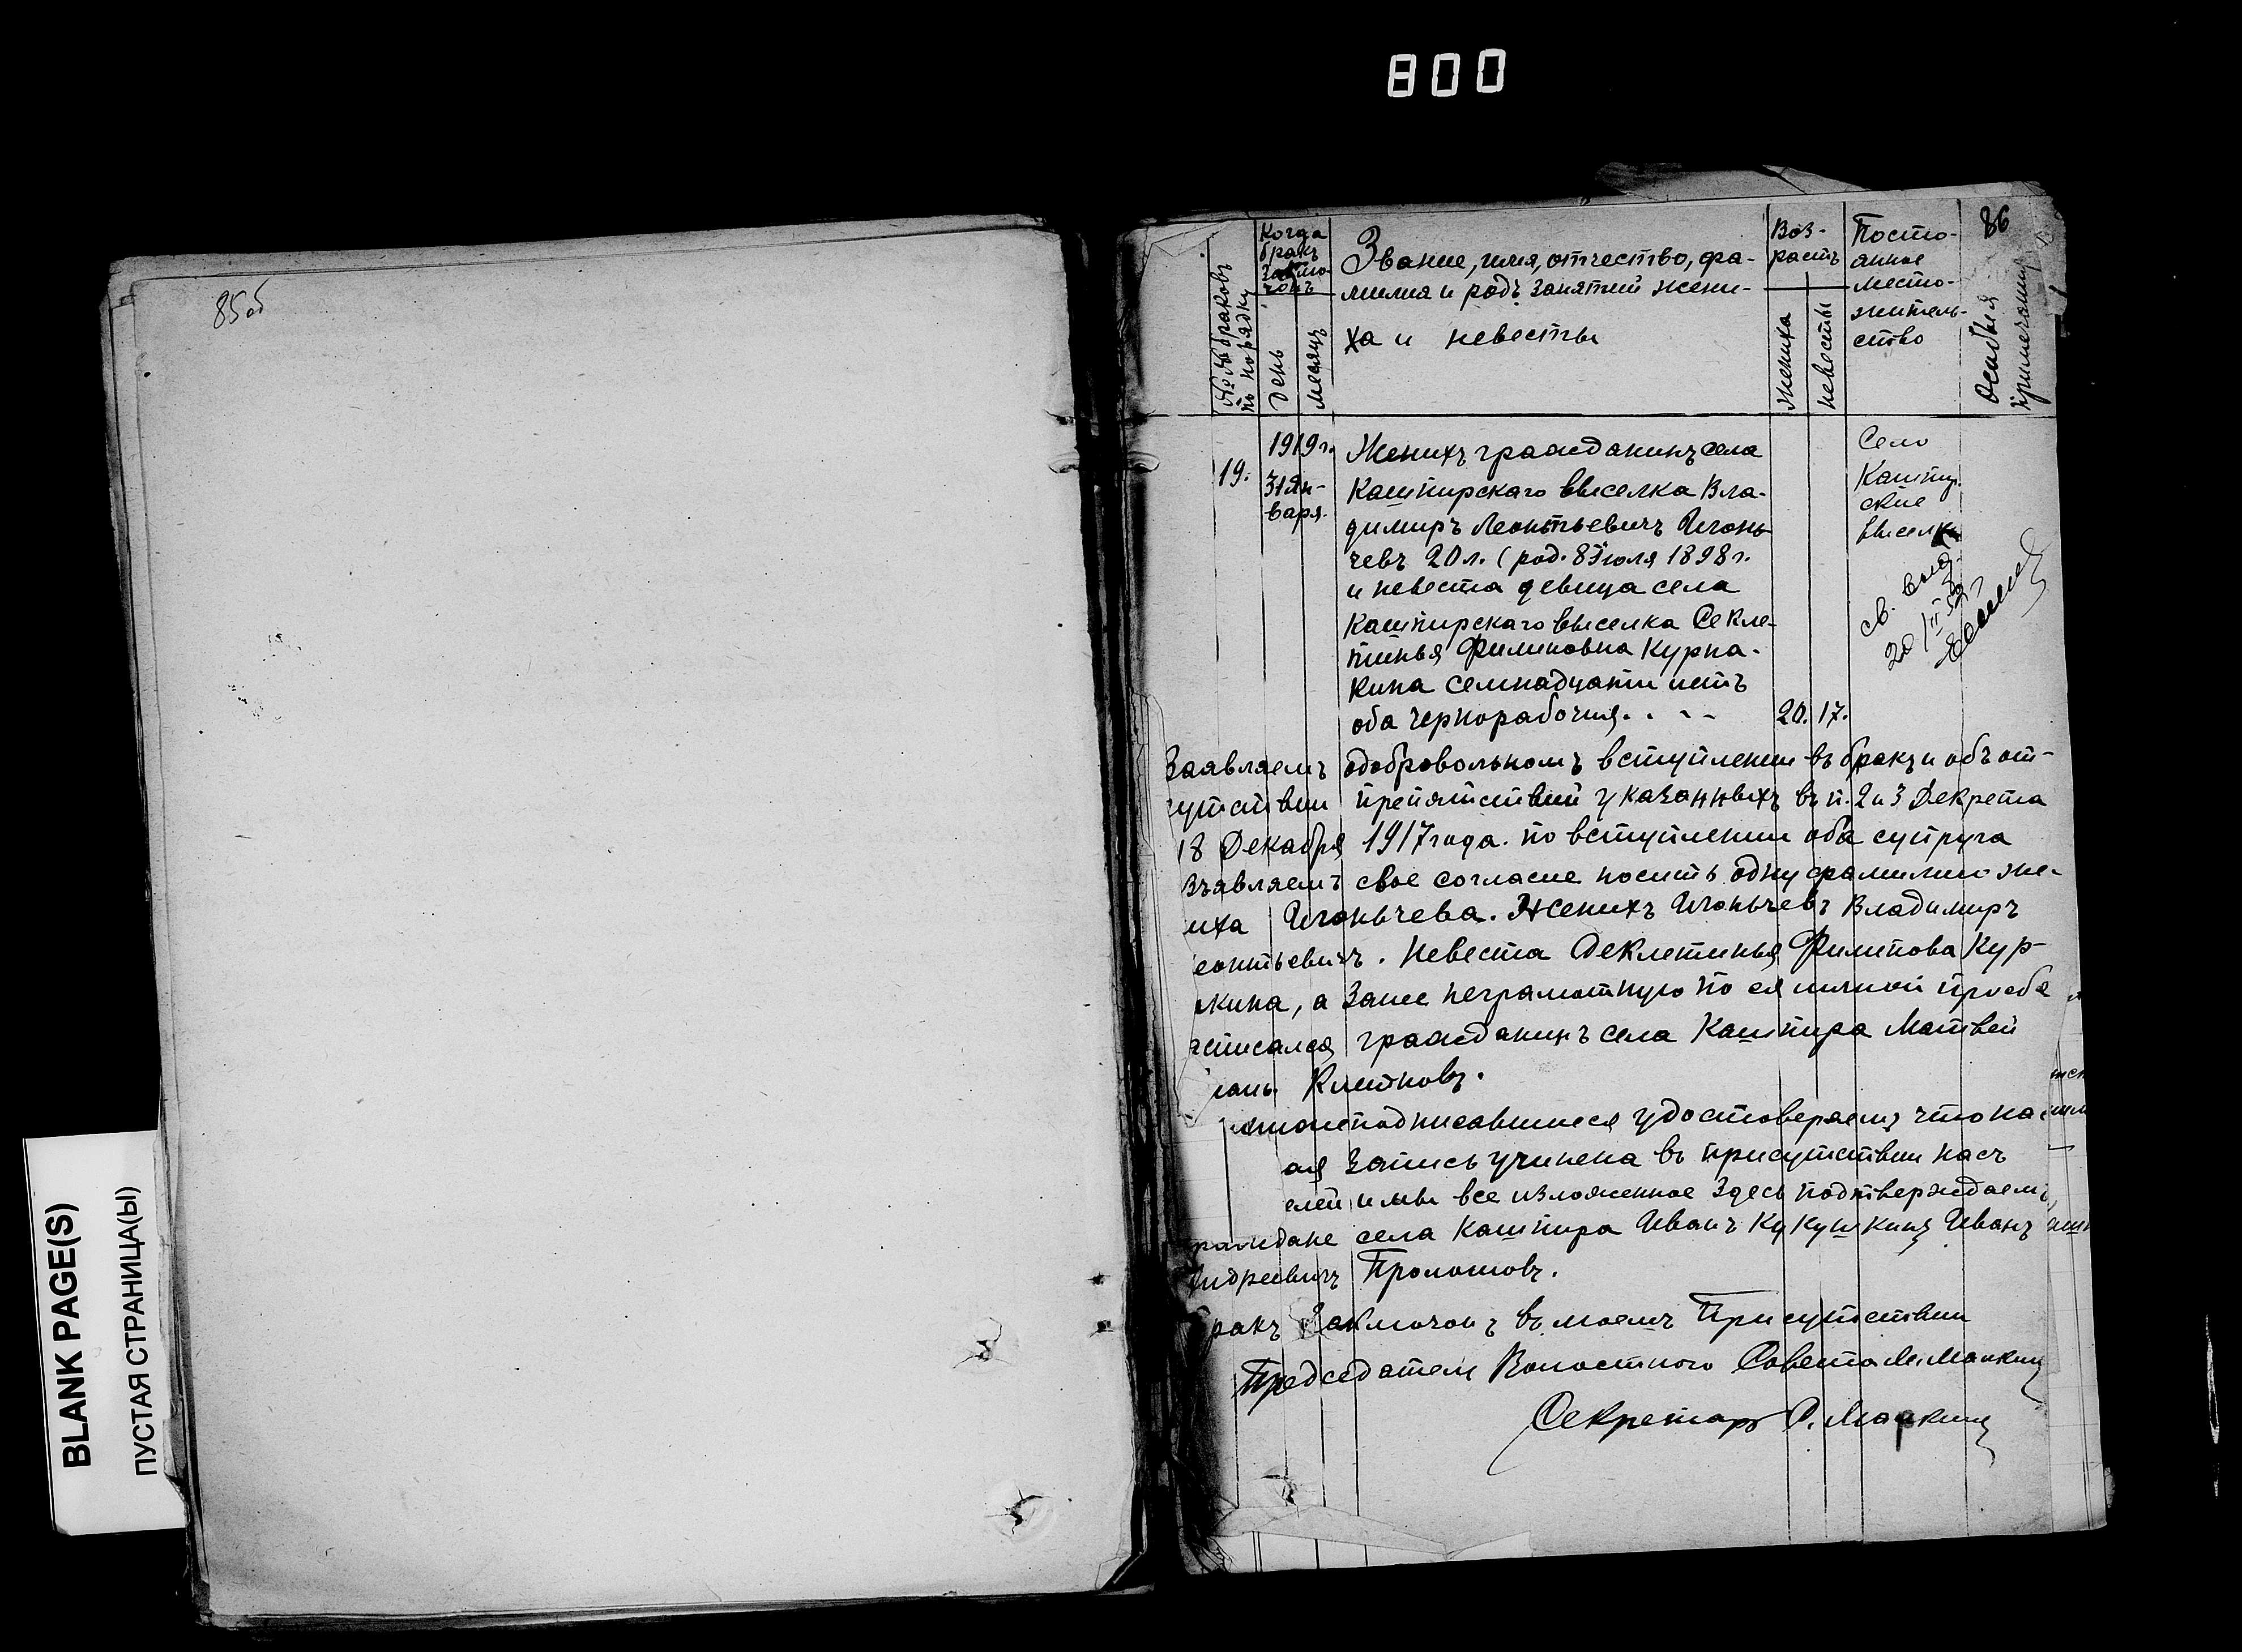 800
85об
BLANK PAGE(S)
ПУСТАЯ СТРАНИЦА(Ы)
86
№№ браковъ по порядку
Когда бракъ заключонъ
День
Месяцъ
Звание, имя, отчество, фа-
милия и родъ занятий жени-
ха и невесты
Воз-
растъ
Жениха
Невесты
Посто-
анное
место-
житель-
ство
Особыя
примечания
19.
1919 г.
31 Ян-
варя.
Женихъ гражданинъ села
Кашпирскаго выселка Вла-
димиръ Леонтьевичъ Игонь
чевъ 20 л. (род. 8 Июля 1898 г.
и невеста девица села
Кашпирскаго выселка Секле-
тинья Филиповна Курна-
кина семнадцати летъ
оба чернорабочия. . - -
20. 17.
Село
Кашпи
ские
выселк
св. выд.
20/II 58 г
Заявляемъ одобровольномъ вступлении въ бракъ и объ от-
сутствии препятствий указанныхъ въ п. 2 и 3 Декрета
18 Декабря 1917 года. по вступлении оба супруга
въявляемъ свое согласие носить одну фамилию же-
иха Игоньчева. Женихъ Игоньчевъ Владимиръ
еонтьевичъ. Невеста Секлетинья Филипова Кур-
кина, а занее неграмотную по ея личной прозбе
асписался гражданинъ села Кашпира Матвей
Клитновъ.
подписавшиеся удостоверяемъ что нас
ая запись учинена въ присутствии насъ
елей и мы все изложенное здесь подтверждаемъ,
граждане села Кашпира Иванъ Кукушкинъ Иванъ
Андреевичъ Проломовъ.
Бракъ Заключонъ въ моемъ Присутствии
Председатель Волостного Совета М. Маркин
Секретарь С. Маркин